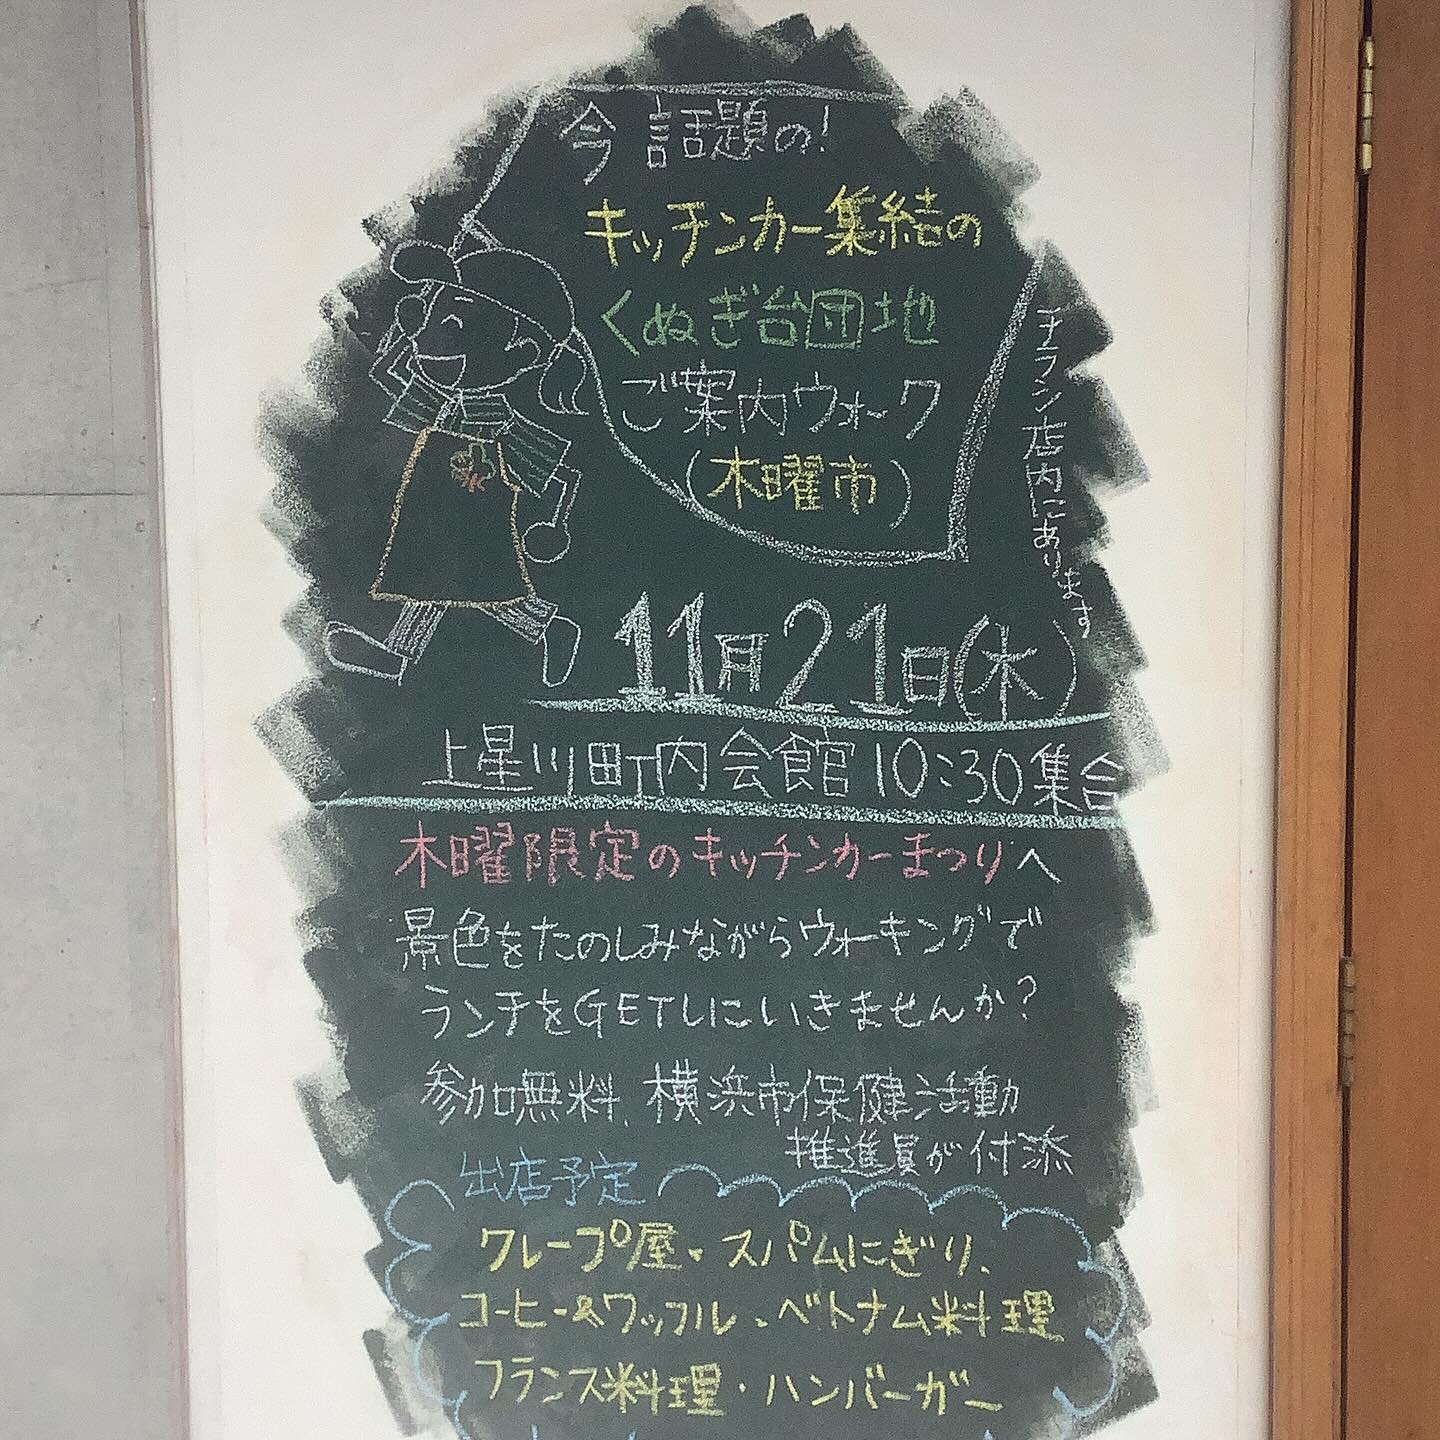 今話題の!
キッチンカー集結の
くぬぎ台団地
ご案内ウォーク
(木曜市)
チラシ店内にあります
11月21日(木)
上星川町内会館10:30集合
木曜限定のキッチンカーまつりへ
景色をたのしみながらウォーキングで
ランチをGETしにいきませんか?
参加無料、横浜市保健活動
推進員が付添
出店予定
クレープ屋・スパムにぎり、
コーヒー&ワッフル、ベトナム料理
フランス料理・ハンバーガー